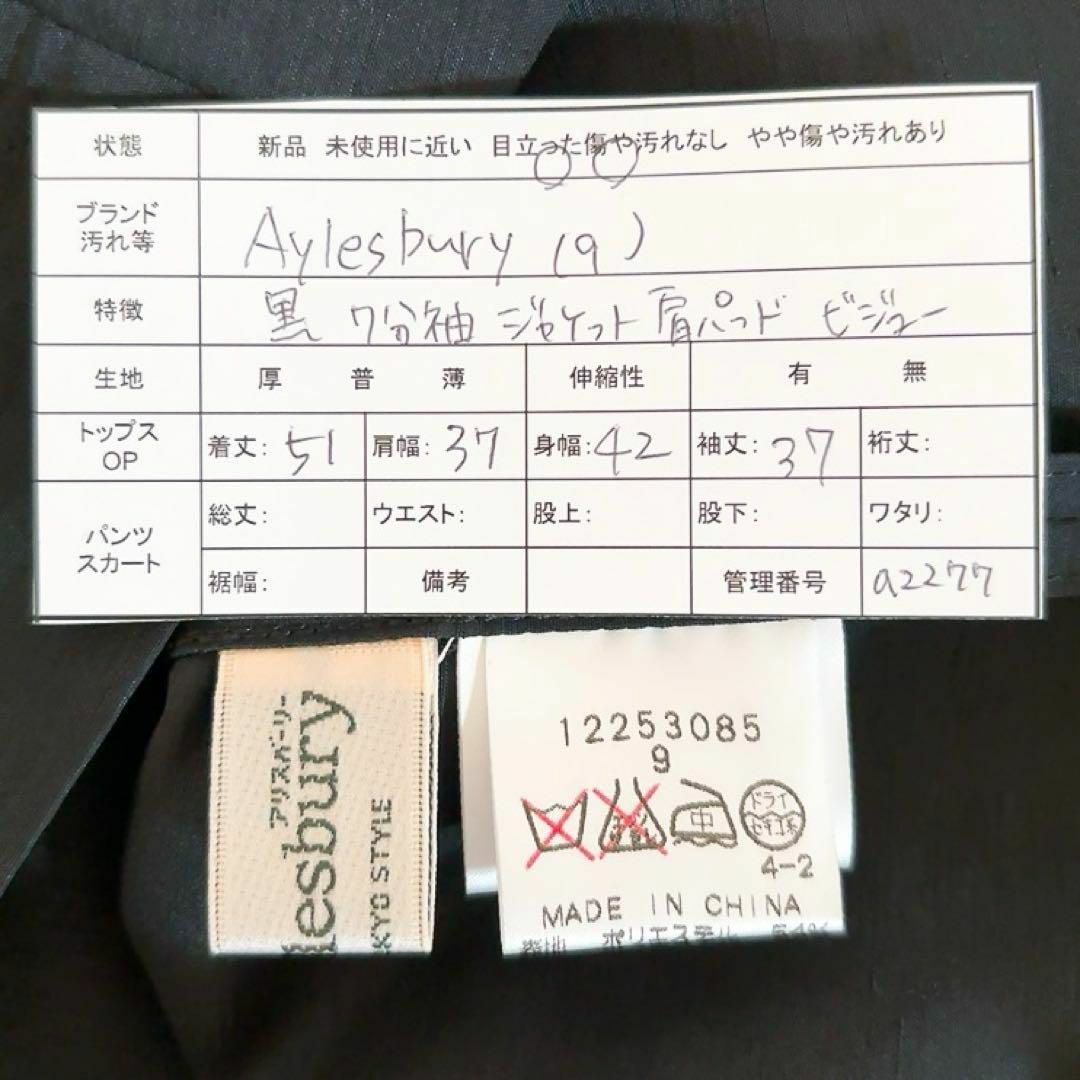 状態 新品 未使用に近い 目立った傷や汚れなし やや傷や汚れあり
ブランド
汚れ等
Aylesbury (9)
特徴 黒 7分袖 ジャケット 肩パッド ビジュー
生地 厚 普 薄 伸縮性 有 無
トップス
OP
着丈: 51 肩幅: 37 身幅: 42 袖丈: 37 裄丈:
パンツ
スカート
総丈: ウエスト: 股上: 股下: ワタリ:
裾幅: 備考 管理番号 a2277
アリスバーリー
lesbury
KYO STYLE
12253085
9
中
ドライ
セキユ系
4-2
MADE IN CHINA
表地 ポリエステル 64%